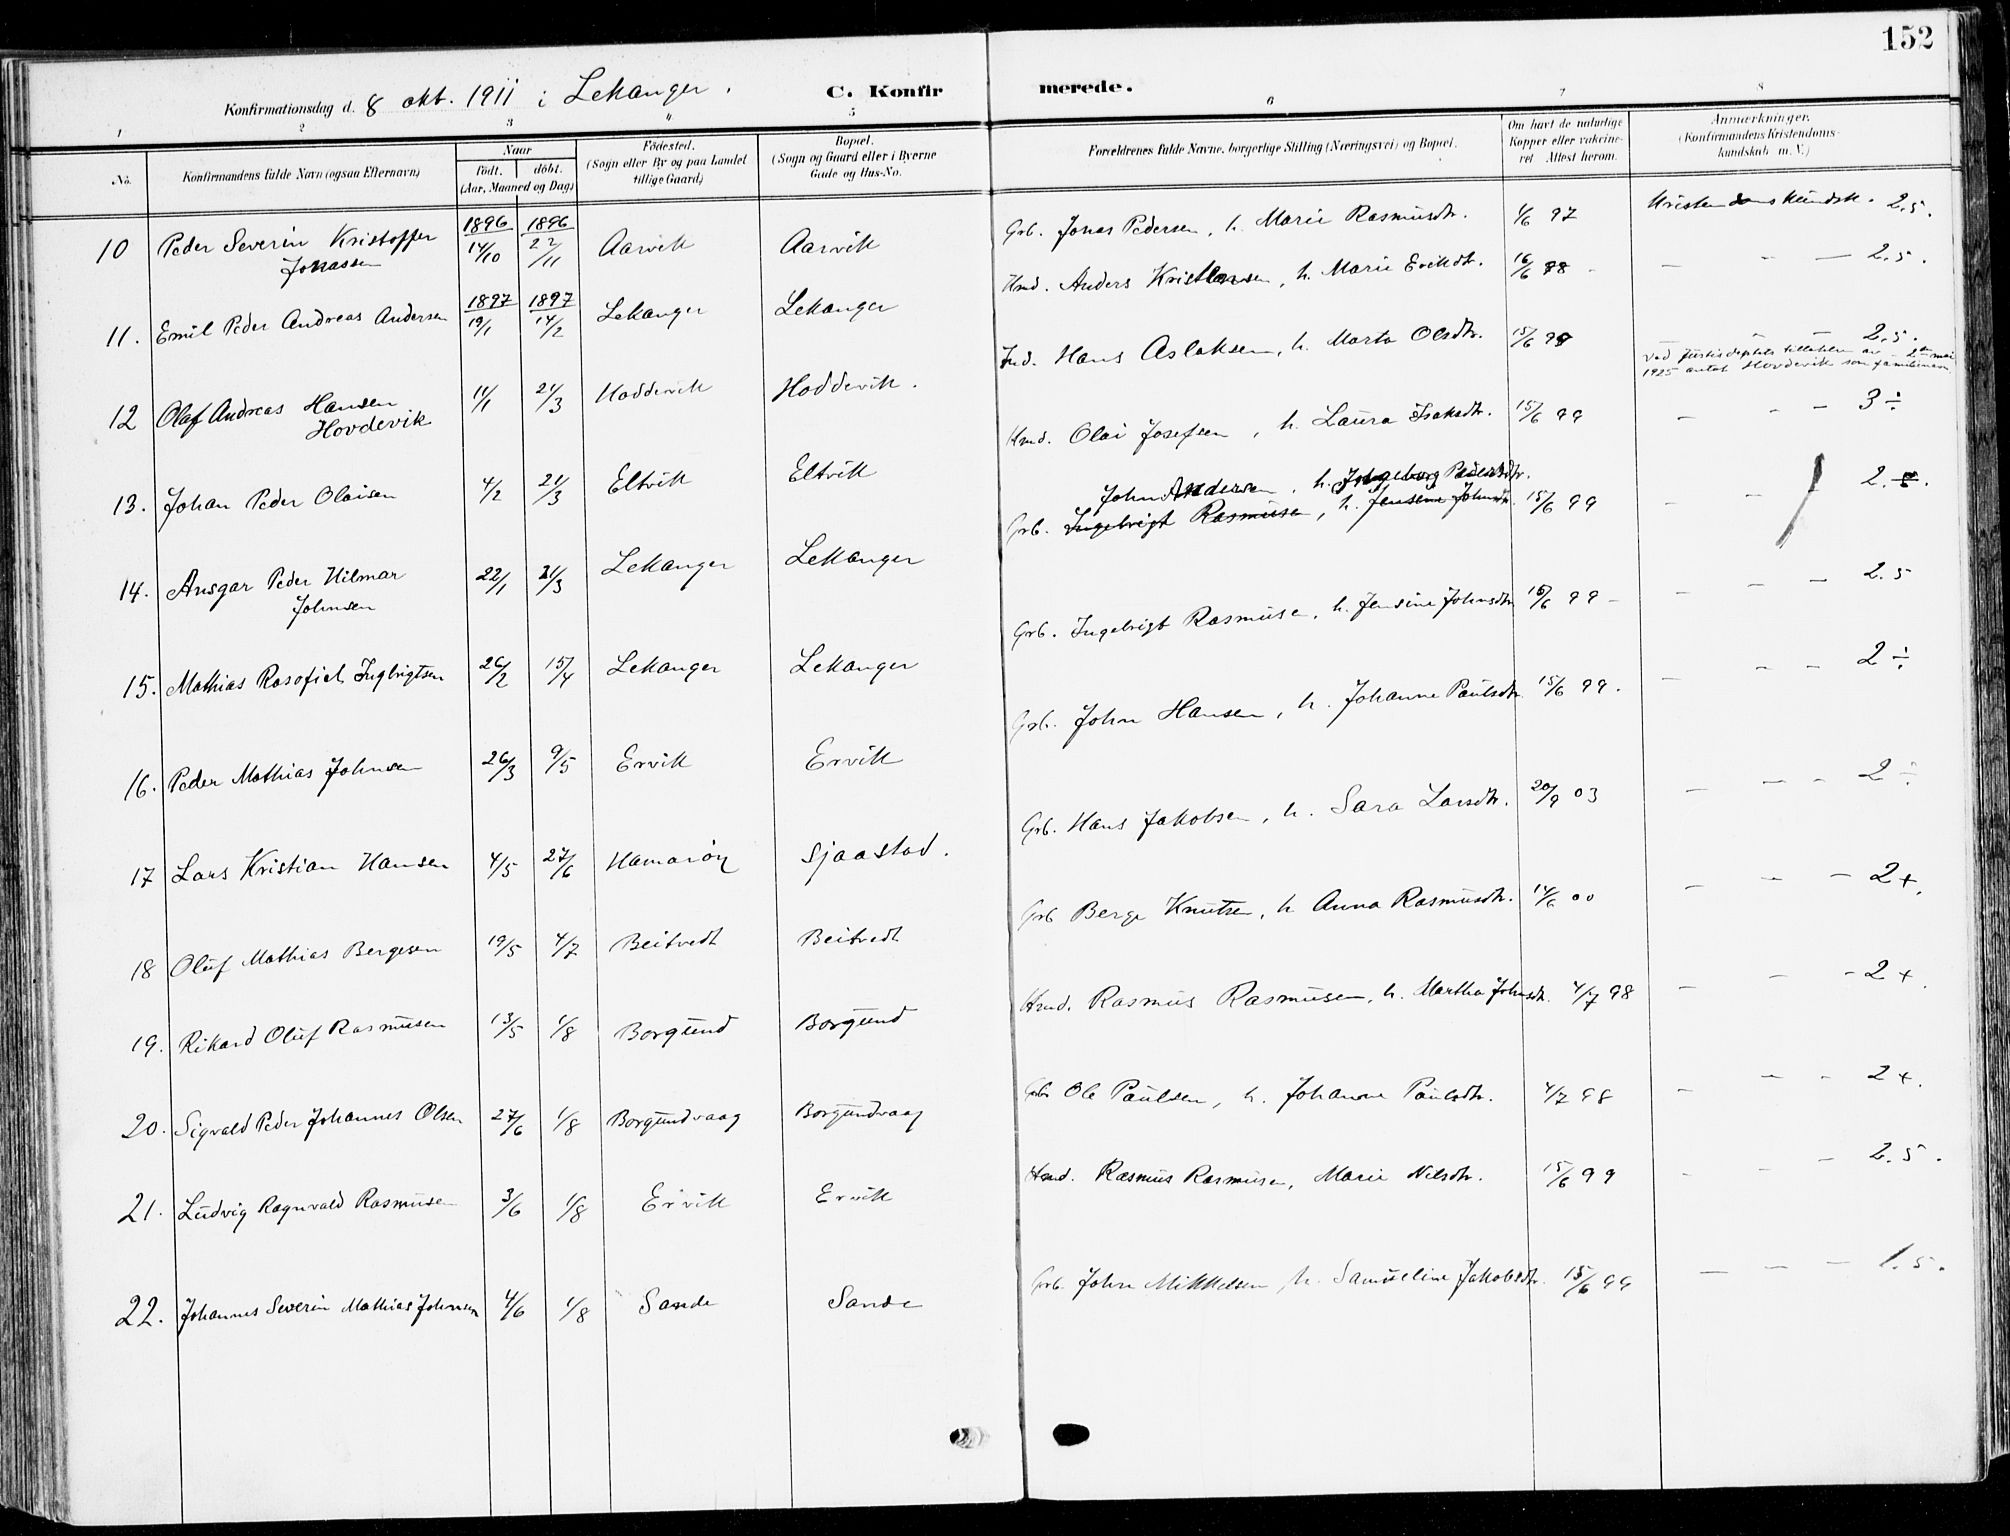 152
Konfirmationsdag d. 8 okt. 1911 i Lekanger. C. Konfirmerede.
1 2 3 4 5 6 7 8
No. Konfirmandens fulde Navn (ogsaa Efternavn) Naar födt. döbt. (Aar, Maaned og Dag) Födested. (Sogn eller By og paa Landet tillige Gaard) Bopæl. (Sogn og Gaard eller i Byerne Gade og Hus-No. Forældrenes fulde Navne, borgerlige Stilling (Næringsvei) og Bopæl. Om havt de naturlige Kopper eller vakcineret. Attest herom. Anmærkninger. (Konfirmandens Kristendomskundskab m. V.)
10 Peder Severin Kristoffer Jonassen 1896 14/10 1896 22/11 Aarvik Aarvik Grb. Jonas Pedersen, h. Marie Rasmusdtr. 1/6 97 Kristendomskundsk. 2.5.
11. Emil Peder Andreas Andersen 1897 19/1 1897 14/2 Lekanger Lekanger Hmd. Anders Kristensen, h. Marie Eriksdtr. 16/6 98 - — - — 2.5.
12 Olaf Andreas Hansen Hovdevik 11/1 21/3 Hoddevik Hoddevik. Ind. Hans Aslaksen, h. Marta Olsdtr. 15/6 99 — - — 2.5.
Ved Justisdeptets tillatelse av 2. mai 1925 antat Hovdevik som familienavn
13. Johan Peder Olaisen 4/2 21/3 Eltvik Eltvik Hmd. Olai Josefsen, h. Laura Isaksdtr. 15/6 99 — - — 3 ÷
14. Ansgar Peder Hilmar Johnsen 22/1 21/3 Lekanger Lekanger John Andersen, h. Ingeborg Pedersdtr.
Grb. Ingebrigt Rasmusen, h. Jensine Johnsdtr. 15/6 99 - - 2.5.
15. Mathias Rasofiel Ingbrigtsen 26/2 15/4 Lekanger Lekanger Grb. Ingebrigt Rasmusen, h. Jensine Johnsdtr. 15/6 99 - — - — 2.5
16. Peder Mathias Johnsen 26/3 9/5 Ervik Ervik Grb. John Hansen, h. Johanne Paulsdtr. 15/6 99. — - - 2 ÷
17 Lars Kristian Hansen 4/5 27/6 Hamarøy Sjaastad. Grb. Hans Jakobsen, h. Sara Larsdtr. 20/9 03 — — - 2 ÷
18 Oluf Mathias Bergesen 19/5 4/7 Beitvedt Beitvedt Grb Berge Knutsen, h Anna Rasmusdtr. 14/6 00 — - — 2 +.
19. Rikard Oluf Rasmusen 13/5 1/8 Borgund Borgund Hmd. Rasmus Rasmusen, h. Martha Johnsdtr. 4/7 98 — - - 2 +.
20. Sigvald Peder Johannes Olsen 27/6 1/8 Borgundvaag Borgundvaag Grb. Ole Paulsen, h. Johanne Paulsdtr. 4/7 98 - - - 2 +.
21. Ludvig Ragnvald Rasmusen 3/6 1/8 Ervik Ervik Hmd. Rasmus Rasmusen, Marie Nilsdtr. 15/6 99 - - - 2.5.
22. Johannes Severin Mathias Johnsen 4/6 1/8 Sande Sande Grb. John Mikkelsen, h. Samueline Jakobsdtr. 15/6 99 — — — 1.5.